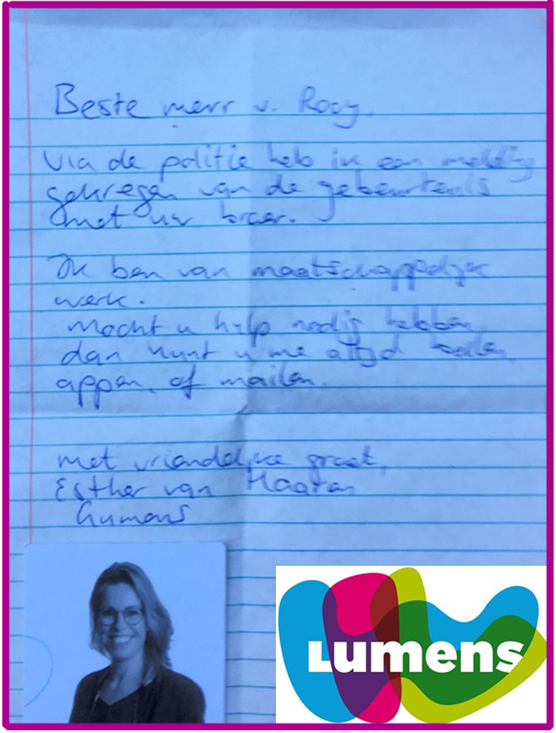 Beste merr v. Rooy,
Via de politie heb ik een melding
gekregen van de gebeurtenis
met uw broer.
Ik ben van maatschappelijk
werk.
Mocht u hulp nodig hebben
dan kunt u me altijd bellen
appen, of mailen.
met vriendelijke groet,
Esther van Haaren
Lumens
Lumens